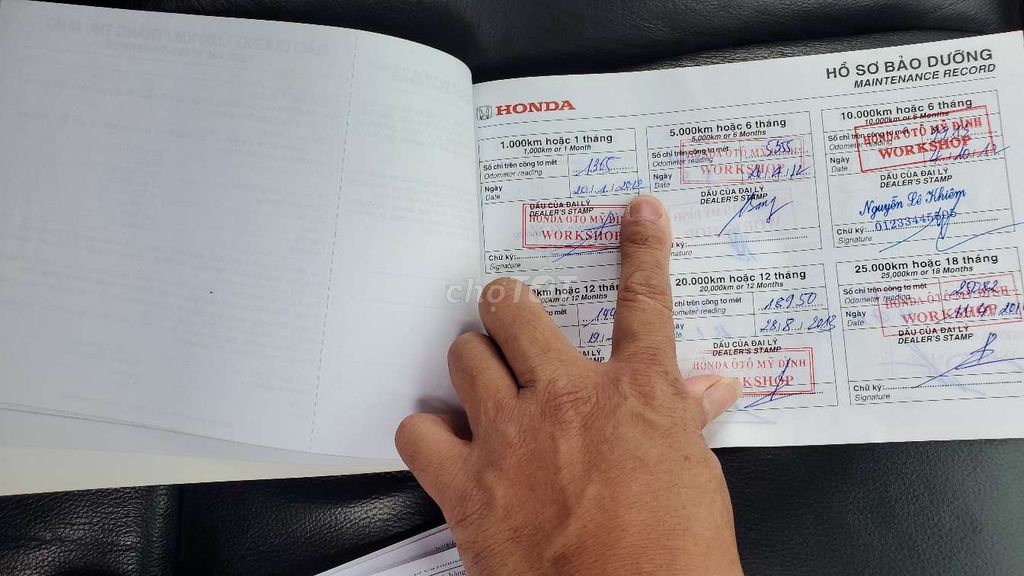 HỒ SƠ BẢO DƯỠNG
MAINTENANCE RECORD
HONDA
1.000km hoặc 1 tháng
1,000km or 1 Month
Số chỉ trên công tơ mét 1365
Odometer reading
Ngày
Date
DẤU CỦA ĐẠI LÝ
DEALER'S STAMP
HONDA ÔTÔ MỸ ĐÌNH
WORKSHOP
Chữ ký:
Signature
5.000km hoặc 6 tháng
5,000km or 6 Months
Số chỉ trên công tơ mét 5555
Odometer reading
Ngày
Date
HONDA ÔTÔ MỸ ĐÌNH
WORKSHOP
DẤU CỦA ĐẠI LÝ
DEALER'S STAMP
ký:
10.000km hoặc 6 tháng
10,000km or 6 Months
Số chỉ trên công tơ mét
Odometer reading
Ngày
Date
HONDA ÔTÔ MỸ ĐÌNH
WORKSHOP
DẤU CỦA ĐẠI LÝ
DEALER'S STAMP
Nguyễn Lê Khiêm
01233445505
Chữ ký:
Signature
km hoặc 12 tháng
km or 12 Months
công tơ mét
reading
DẤU CỦA ĐẠI LÝ
20.000km hoặc 12 tháng
20,000km or 12 Months
trên công tơ mét 18950
reading
28/8/2018
DẤU CỦA ĐẠI LÝ
DEALER'S STAMP
HONDA ÔTÔ MỸ ĐÌNH
WORKSHOP
25.000km hoặc 18 tháng
25,000km or 18 Months
Số chỉ trên công tơ mét
Odometer reading
Ngày
Date
HONDA ÔTÔ MỸ ĐÌNH
WORKSHOP
DẤU CỦA ĐẠI LÝ
DEALER'S STAMP
Chữ ký:
Signature